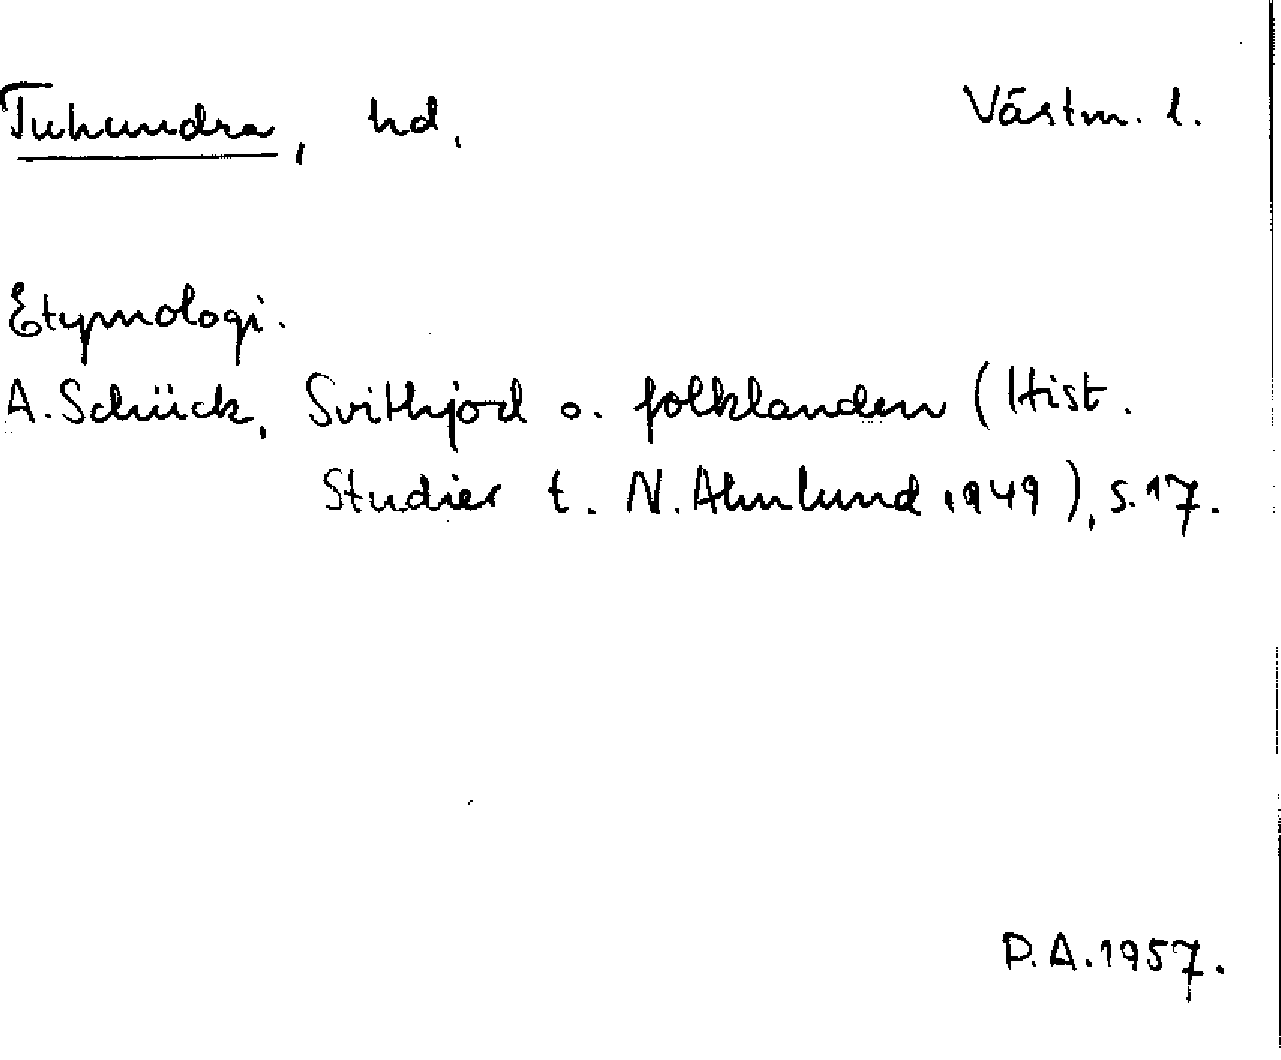 Tuhundra, hd,
Västm. l.
Etymologi.
A. Schück, Svithjod o. folklanden (Hist.
Studier t. N. Ahnlund 1949), s. 17.
P.A. 1957.